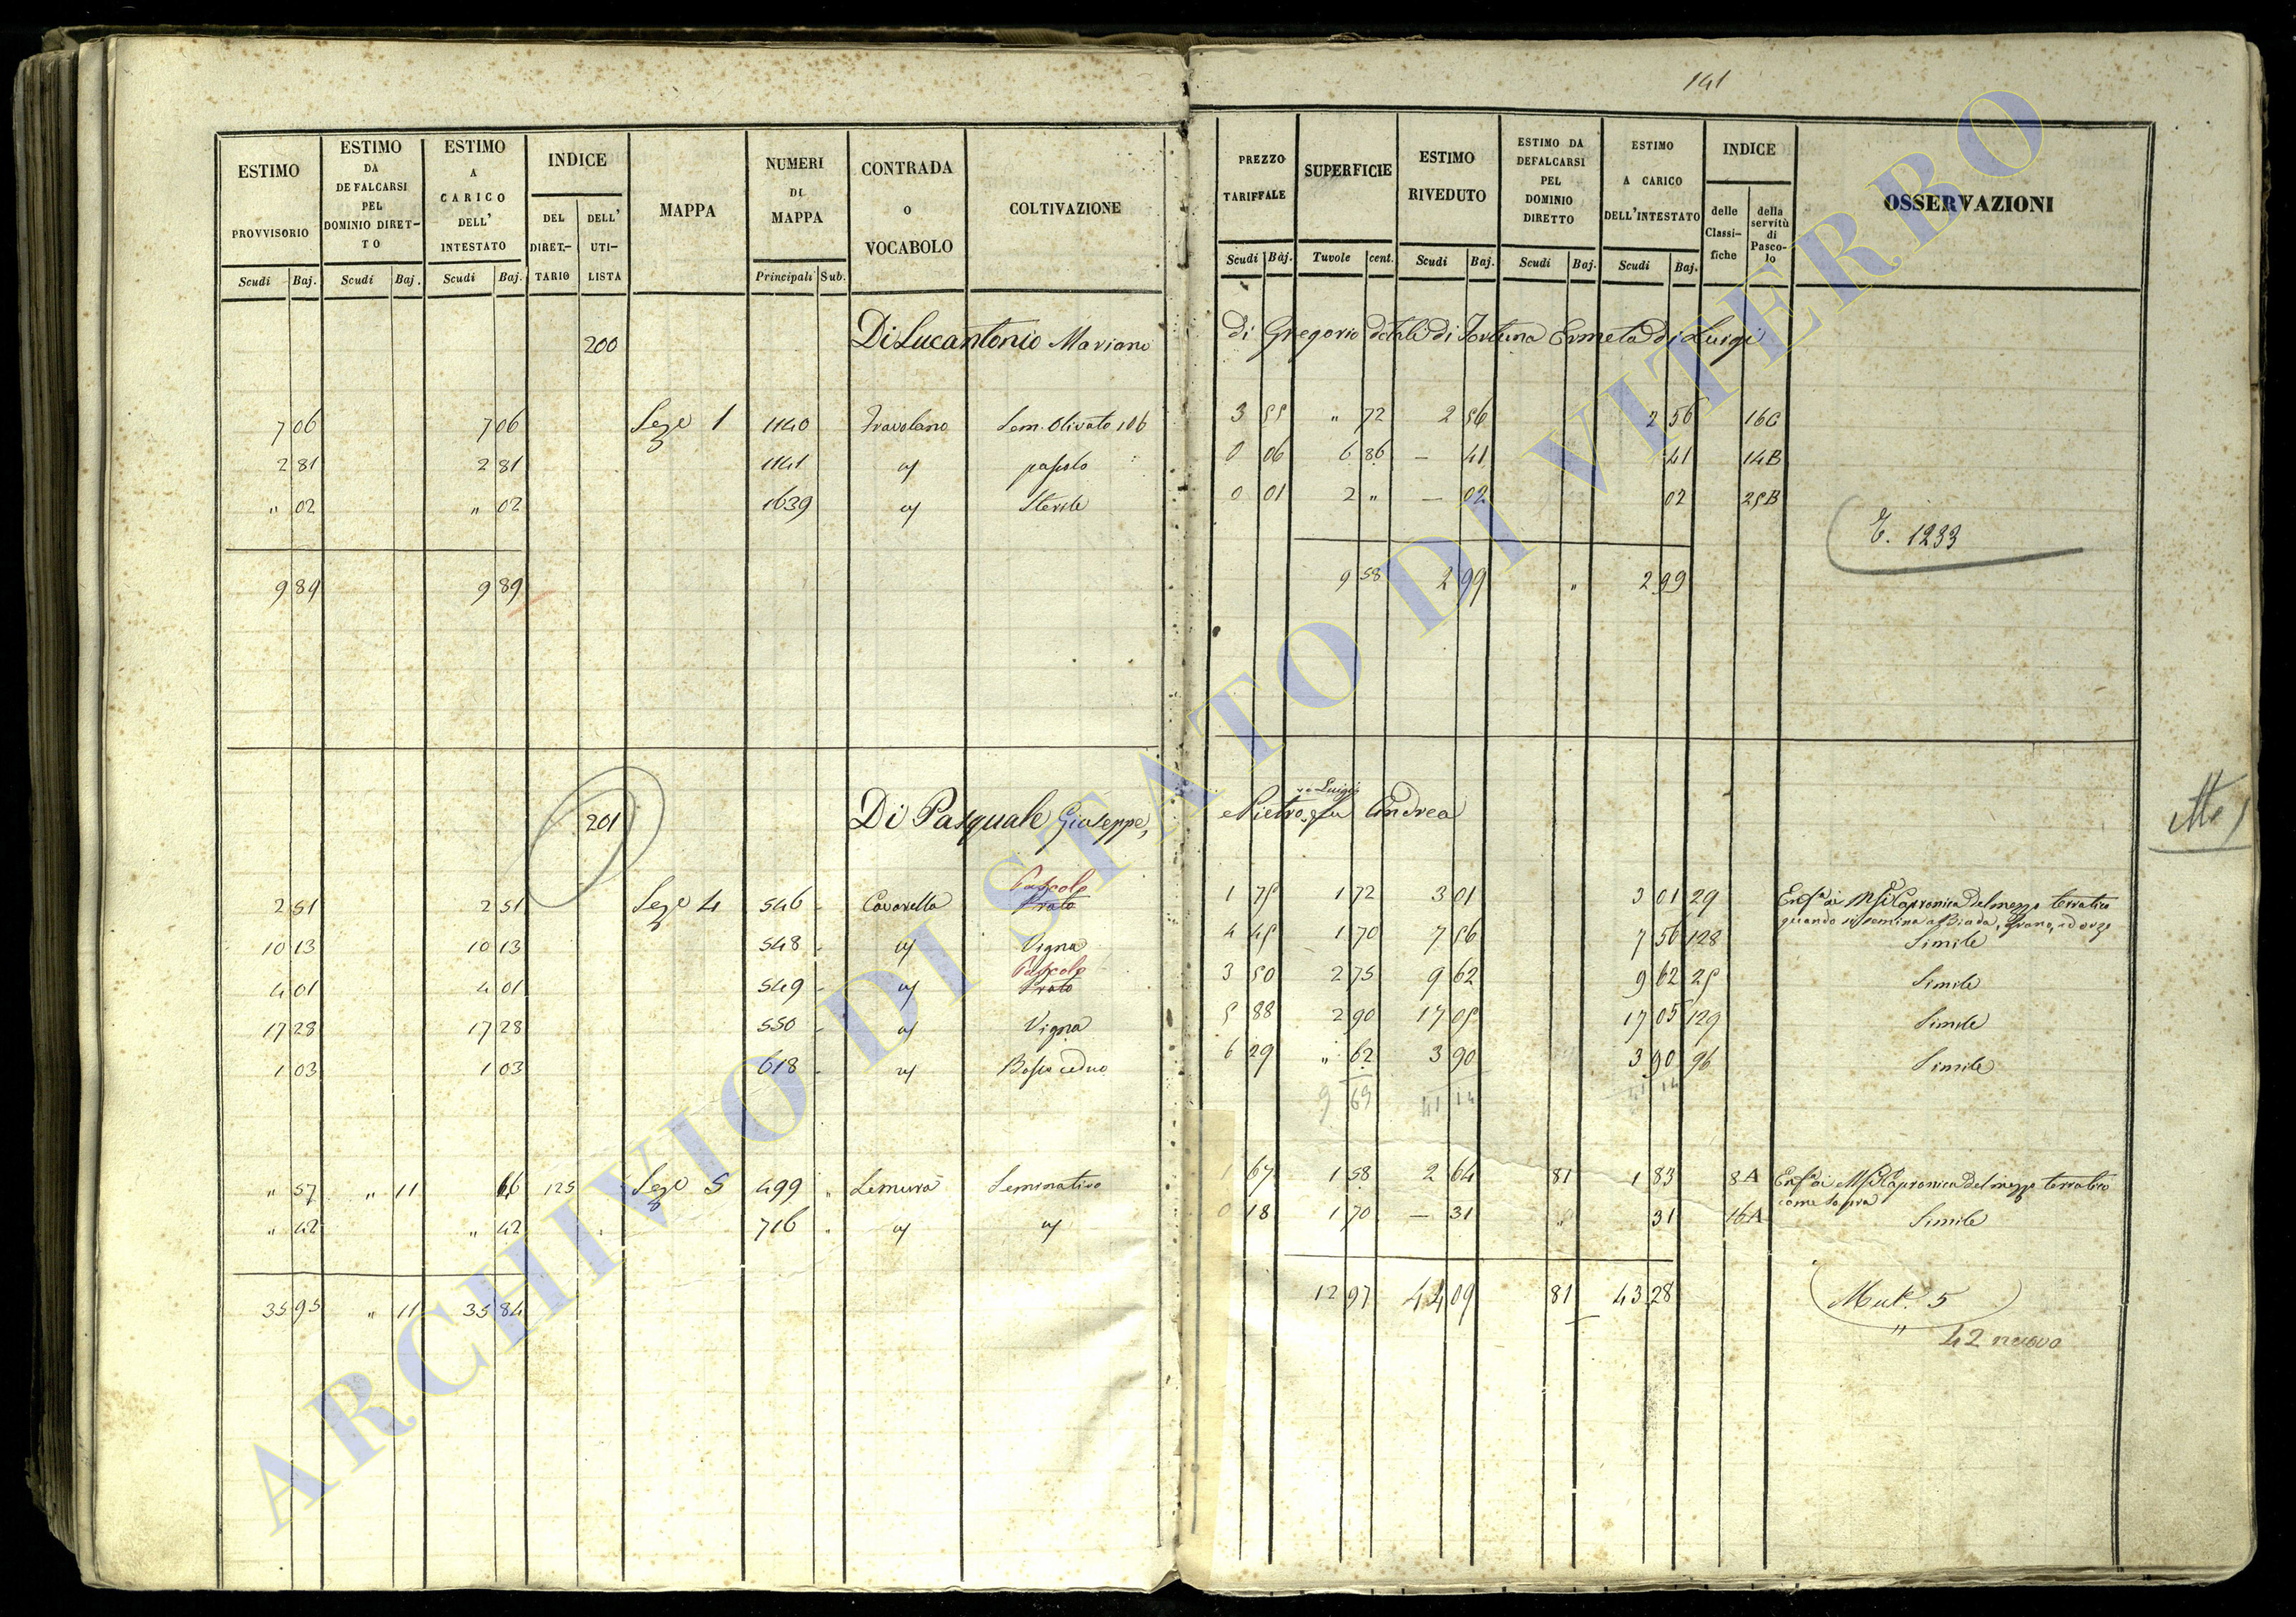 141
ESTIMO PROVVISORIO Scudi Baj.
ESTIMO DA DEFALCARSI PEL DOMINIO DIRETTO Scudi Baj.
ESTIMO A CARICO DELL' INTESTATO Scudi Baj.
INDICE DEL DIRET.-TARIO DELL' UTI-LISTA
MAPPA
NUMERI DI MAPPA Principali Sub.
CONTRADA O VOCABOLO
COLTIVAZIONE
PREZZO TARIFFALE Scudi Baj.
SUPERFICIE Tavole cent.
ESTIMO RIVEDUTO Scudi Baj.
ESTIMO DA DEFALCARSI PEL DOMINIO DIRETTO Scudi Baj.
ESTIMO A CARICO DELL'INTESTATO Scudi Baj.
INDICE delle Classi-fiche della servitù di Pasco-lo
OSSERVAZIONI
200 Di Lucantonio Mariano di Gregorio dotali di Fortuna Ermeta di Luigi
7 06 7 06 Seze 1 1140 Travolano Sem. Olivato 106 3 55 " 72 2 56 2 56 16C
2 81 2 81 1141 " pascolo 0 06 6 86 — 41 41 14B
" 02 " 02 1639 " Sterile 0 01 2 " — 02 02 25B
E. 1233
9 89 9 89 9 58 2 99 " 2 99
201 Di Pasquale Giuseppe, Pietro, fu Andrea
Luigi
Pascolo
2 51 2 51 Seze 4 546 Cavarella Prato 1 75 1 72 3 01 3 01 29 del mezzo terratico
quando si semina a Biada, Grano, ad orzo
10 13 10 13 548 " Vigna 4 45 1 70 7 56 7 56 128 Simile
Pascolo
4 01 4 01 549 " Prato 3 50 2 75 9 62 9 62 25 Simile
17 28 17 28 550 " Vigna 5 88 2 90 17 05 17 05 129 Simile
1 03 1 03 618 " Bosco ceduo 6 29 " 62 3 90 3 90 96 Simile
9 69 41 14 41 14
" 57 " 11 46 125 Seze 5 499 " Lemura Seminativo 1 67 1 58 2 64 81 1 83 8A del mezzo terratico
come sopra
" 42 " 42 716 " " " 0 18 1 70 — 31 " 31 16A Simile
35 95 " 11 35 84 12 97 44 09 81 43 28 Mut. 5
" 42 nuovo
ARCHIVIO DI STATO DI VITERBO